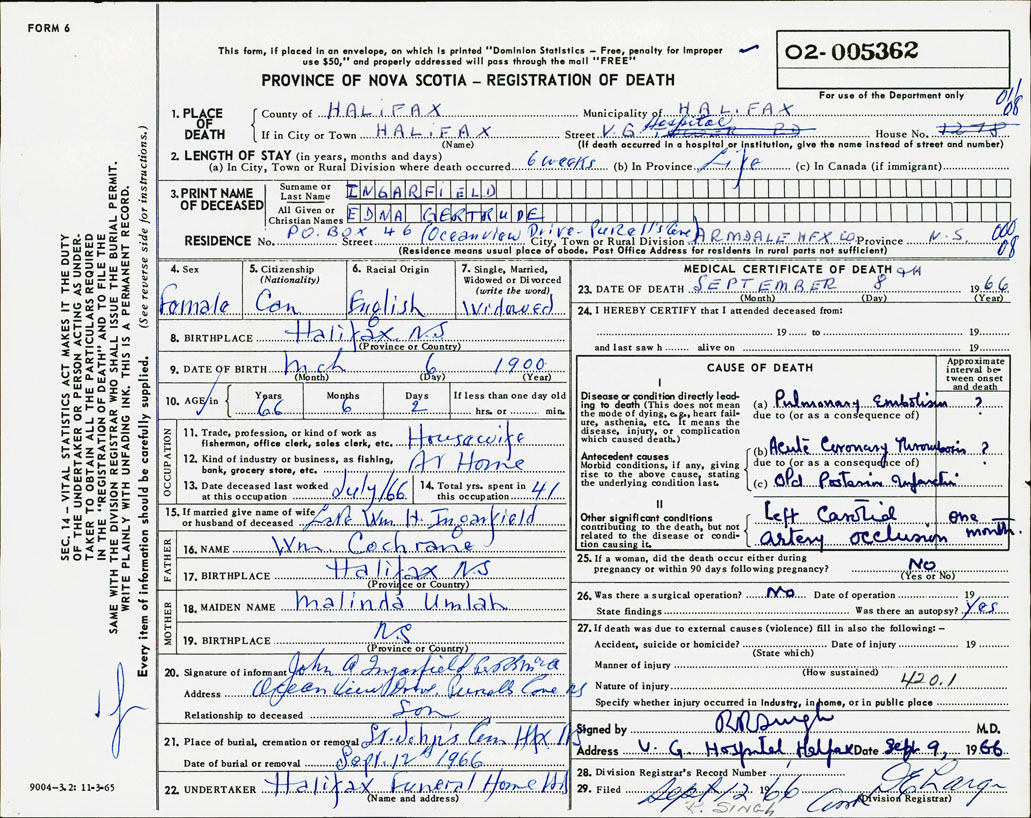 FORM 6
This form, if placed in an envelope, on which is printed "Dominion Statistics – Free, penalty for improper
use $50," and properly addressed will pass through the mail "FREE"
02-005362
PROVINCE OF NOVA SCOTIA – REGISTRATION OF DEATH
For use of the Department only
01/08
1. PLACE OF DEATH
County of HALIFAX Municipality of HALIFAX
If in City or Town HALIFAX Street V.G. Hospital House No. 1278
(Name) (If death occurred in a hospital or institution, give the name instead of street and number)
2. LENGTH OF STAY (in years, months and days)
(a) In City, Town or Rural Division where death occurred 6 weeks (b) In Province Life (c) In Canada (if immigrant)
3. PRINT NAME OF DECEASED
Surname or Last Name INGARFIELD
All Given or Christian Names EDNA GERTRUDE
RESIDENCE No. P.O. BOX 46 Street (Oceanview Drive-Purcell's Cove) City, Town or Rural Division ARMDALE HFX CO. Province N.S. 000 08
(Residence means usual place of abode. Post Office Address for residents in rural parts not sufficient)
4. Sex Female
5. Citizenship (Nationality) Can
6. Racial Origin English
7. Single, Married, Widowed or Divorced (write the word) Widowed
8. BIRTHPLACE Halifax N.S
(Province or Country)
9. DATE OF BIRTH Mch 6 1900
(Month) (Day) (Year)
10. AGE in Years 66 Months 6 Days 2 If less than one day old hrs. or min.
OCCUPATION
11. Trade, profession, or kind of work as fisherman, office clerk, sales clerk, etc. Housewife
12. Kind of industry or business, as fishing, bank, grocery store, etc. At Home
13. Date deceased last worked at this occupation July/66 14. Total yrs. spent in this occupation 41
15. If married give name of wife or husband of deceased Late Wm. H. Ingarfield
FATHER
16. NAME Wm. Cochrane
17. BIRTHPLACE Halifax N.S
(Province or Country)
MOTHER
18. MAIDEN NAME Malinda Umlah
19. BIRTHPLACE N.S
(Province or Country)
20. Signature of informant John A Ingarfield
Address Ocean View Drive, Purcells Cove NS
Relationship to deceased Son
21. Place of burial, cremation or removal St. John's Cem Hfx NS
Date of burial or removal Sept. 12th 1966
22. UNDERTAKER Halifax Funeral Home Ltd
(Name and address)
MEDICAL CERTIFICATE OF DEATH
23. DATE OF DEATH SEPTEMBER 8 1966
(Month) (Day) (Year)
24. I HEREBY CERTIFY that I attended deceased from:
19 to 19
and last saw h alive on 19
CAUSE OF DEATH
Approximate interval between onset and death
I
Disease or condition directly leading to death (This does not mean the mode of dying, e.g., heart failure, asthenia, etc. It means the disease, injury, or complication which caused death.)
(a) Pulmonary Embolism ?
due to (or as a consequence of)
Antecedent causes
Morbid conditions, if any, giving rise to the above cause, stating the underlying condition last.
(b) Acute Coronary Thrombosis ?
due to (or as a consequence of)
(c) Old Posterior Infarction
II
Other significant conditions contributing to the death, but not related to the disease or condition causing it.
Left Carotid artery occlusion one month.
25. If a woman, did the death occur either during pregnancy or within 90 days following pregnancy? No
(Yes or No)
26. Was there a surgical operation? No Date of operation 19
State findings Was there an autopsy? Yes
27. If death was due to external causes (violence) fill in also the following: –
Accident, suicide or homicide? Date of injury 19
(State which)
Manner of injury
(How sustained)
Nature of injury 420.1
Specify whether injury occurred in Industry, in home, or in public place
Signed by RR Singh M.D.
Address V. G. Hospital, Halifax Date Sept 9, 1966
28. Division Registrar's Record Number
29. Filed Sept 12 1966
(Division Registrar)
R. SINGH
SEC. 14 – VITAL STATISTICS ACT MAKES IT THE DUTY
OF THE UNDERTAKER OR PERSON ACTING AS UNDERTAKER
TO OBTAIN ALL THE PARTICULARS REQUIRED
IN THE "REGISTRATION OF DEATH" AND TO FILE THE
SAME WITH THE DIVISION REGISTRAR WHO SHALL ISSUE THE BURIAL PERMIT.
WRITE PLAINLY WITH UNFADING INK. THIS IS A PERMANENT RECORD.
Every item of information should be carefully supplied. (See reverse side for instructions.)
9004-3.2: 11-3-65